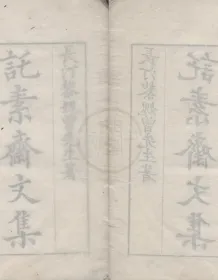 長汀黎媿曾先生著
託素齋文集
長汀黎媿曾先生著
託素齋文集